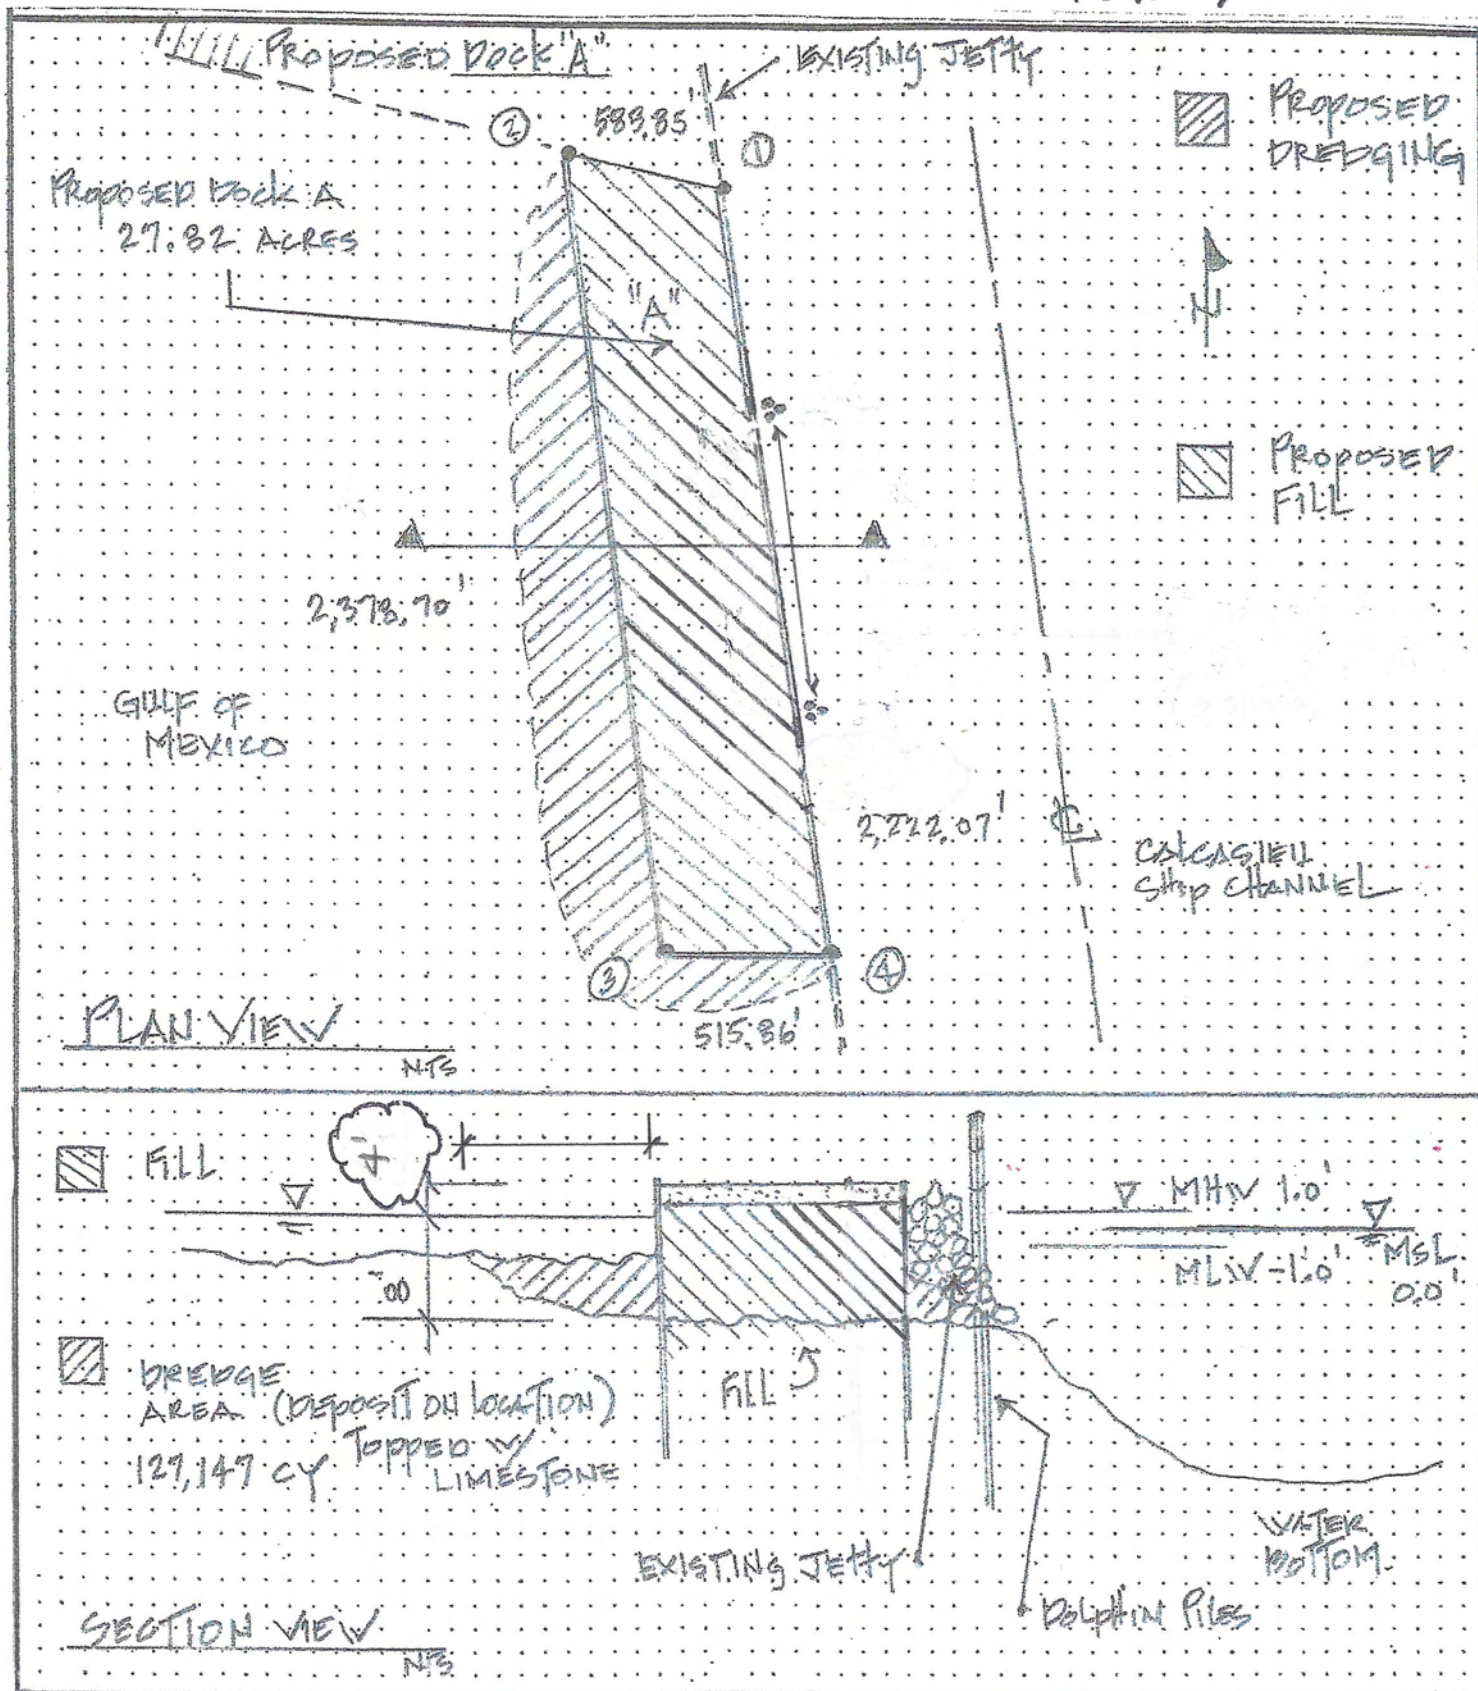 PROPOSED DOCK "A"
EXISTING JETTY
583.85'
②
①
PROPOSED
DREDGING
PROPOSED DOCK A
27.82 ACRES
"A"
N
PROPOSED
FILL
2,378.70'
GULF OF
MEXICO
2,222.07'
CL
CALCASIEU
SHIP CHANNEL
③
④
515.86'
PLAN VIEW
NTS
FILL
MHW 1.0'
MLW -1.0'
MSL
0.0'
DREDGE
AREA (DEPOSIT ON LOCATION)
127,147 CY TOPPED W/
LIMESTONE
FILL
EXISTING JETTY
WATER
BOTTOM
DOLPHIN PILES
SECTION VIEW
NTS